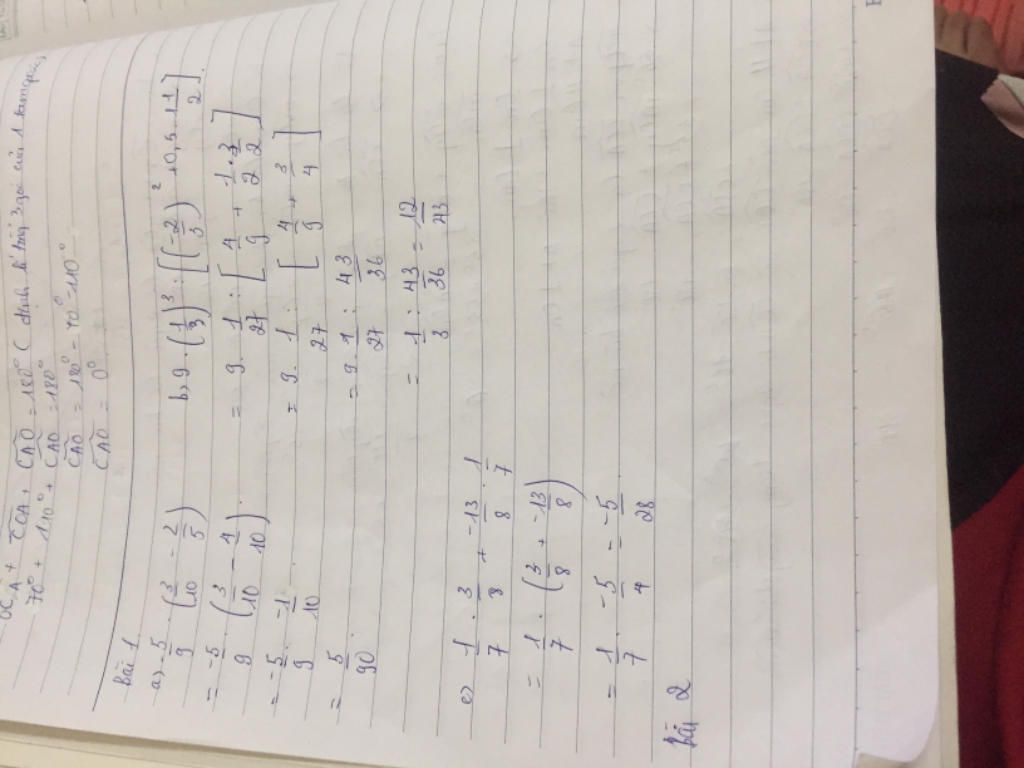 OC A + COA + CAO = 180° ( định lí tổng 3 góc của 1 tam giác)
70° + 110° + CAO = 180°
CAO = 180° - 70° - 110°
CAO = 0°
Bài 1
a) -5/9 . (3/10 - 2/5)
= -5/9 . (3/10 - 4/10)
= -5/9 . -1/10
= 5/90
b) 9 . (1/3)³ : [(-2/3)² + 0,5 . 1 1/2]
= 9 . 1/27 : [4/9 + 1/2 . 3/2]
= 9 . 1/27 : [4/9 + 3/4]
= 9 . 1/27 : 43/36
= 1/3 : 43/36 = 12/43
c) 1/7 . 3/8 + -13/8 . 1/7
= 1/7 . (3/8 + -13/8)
= 1/7 . -5/4 = -5/28
Bài 2